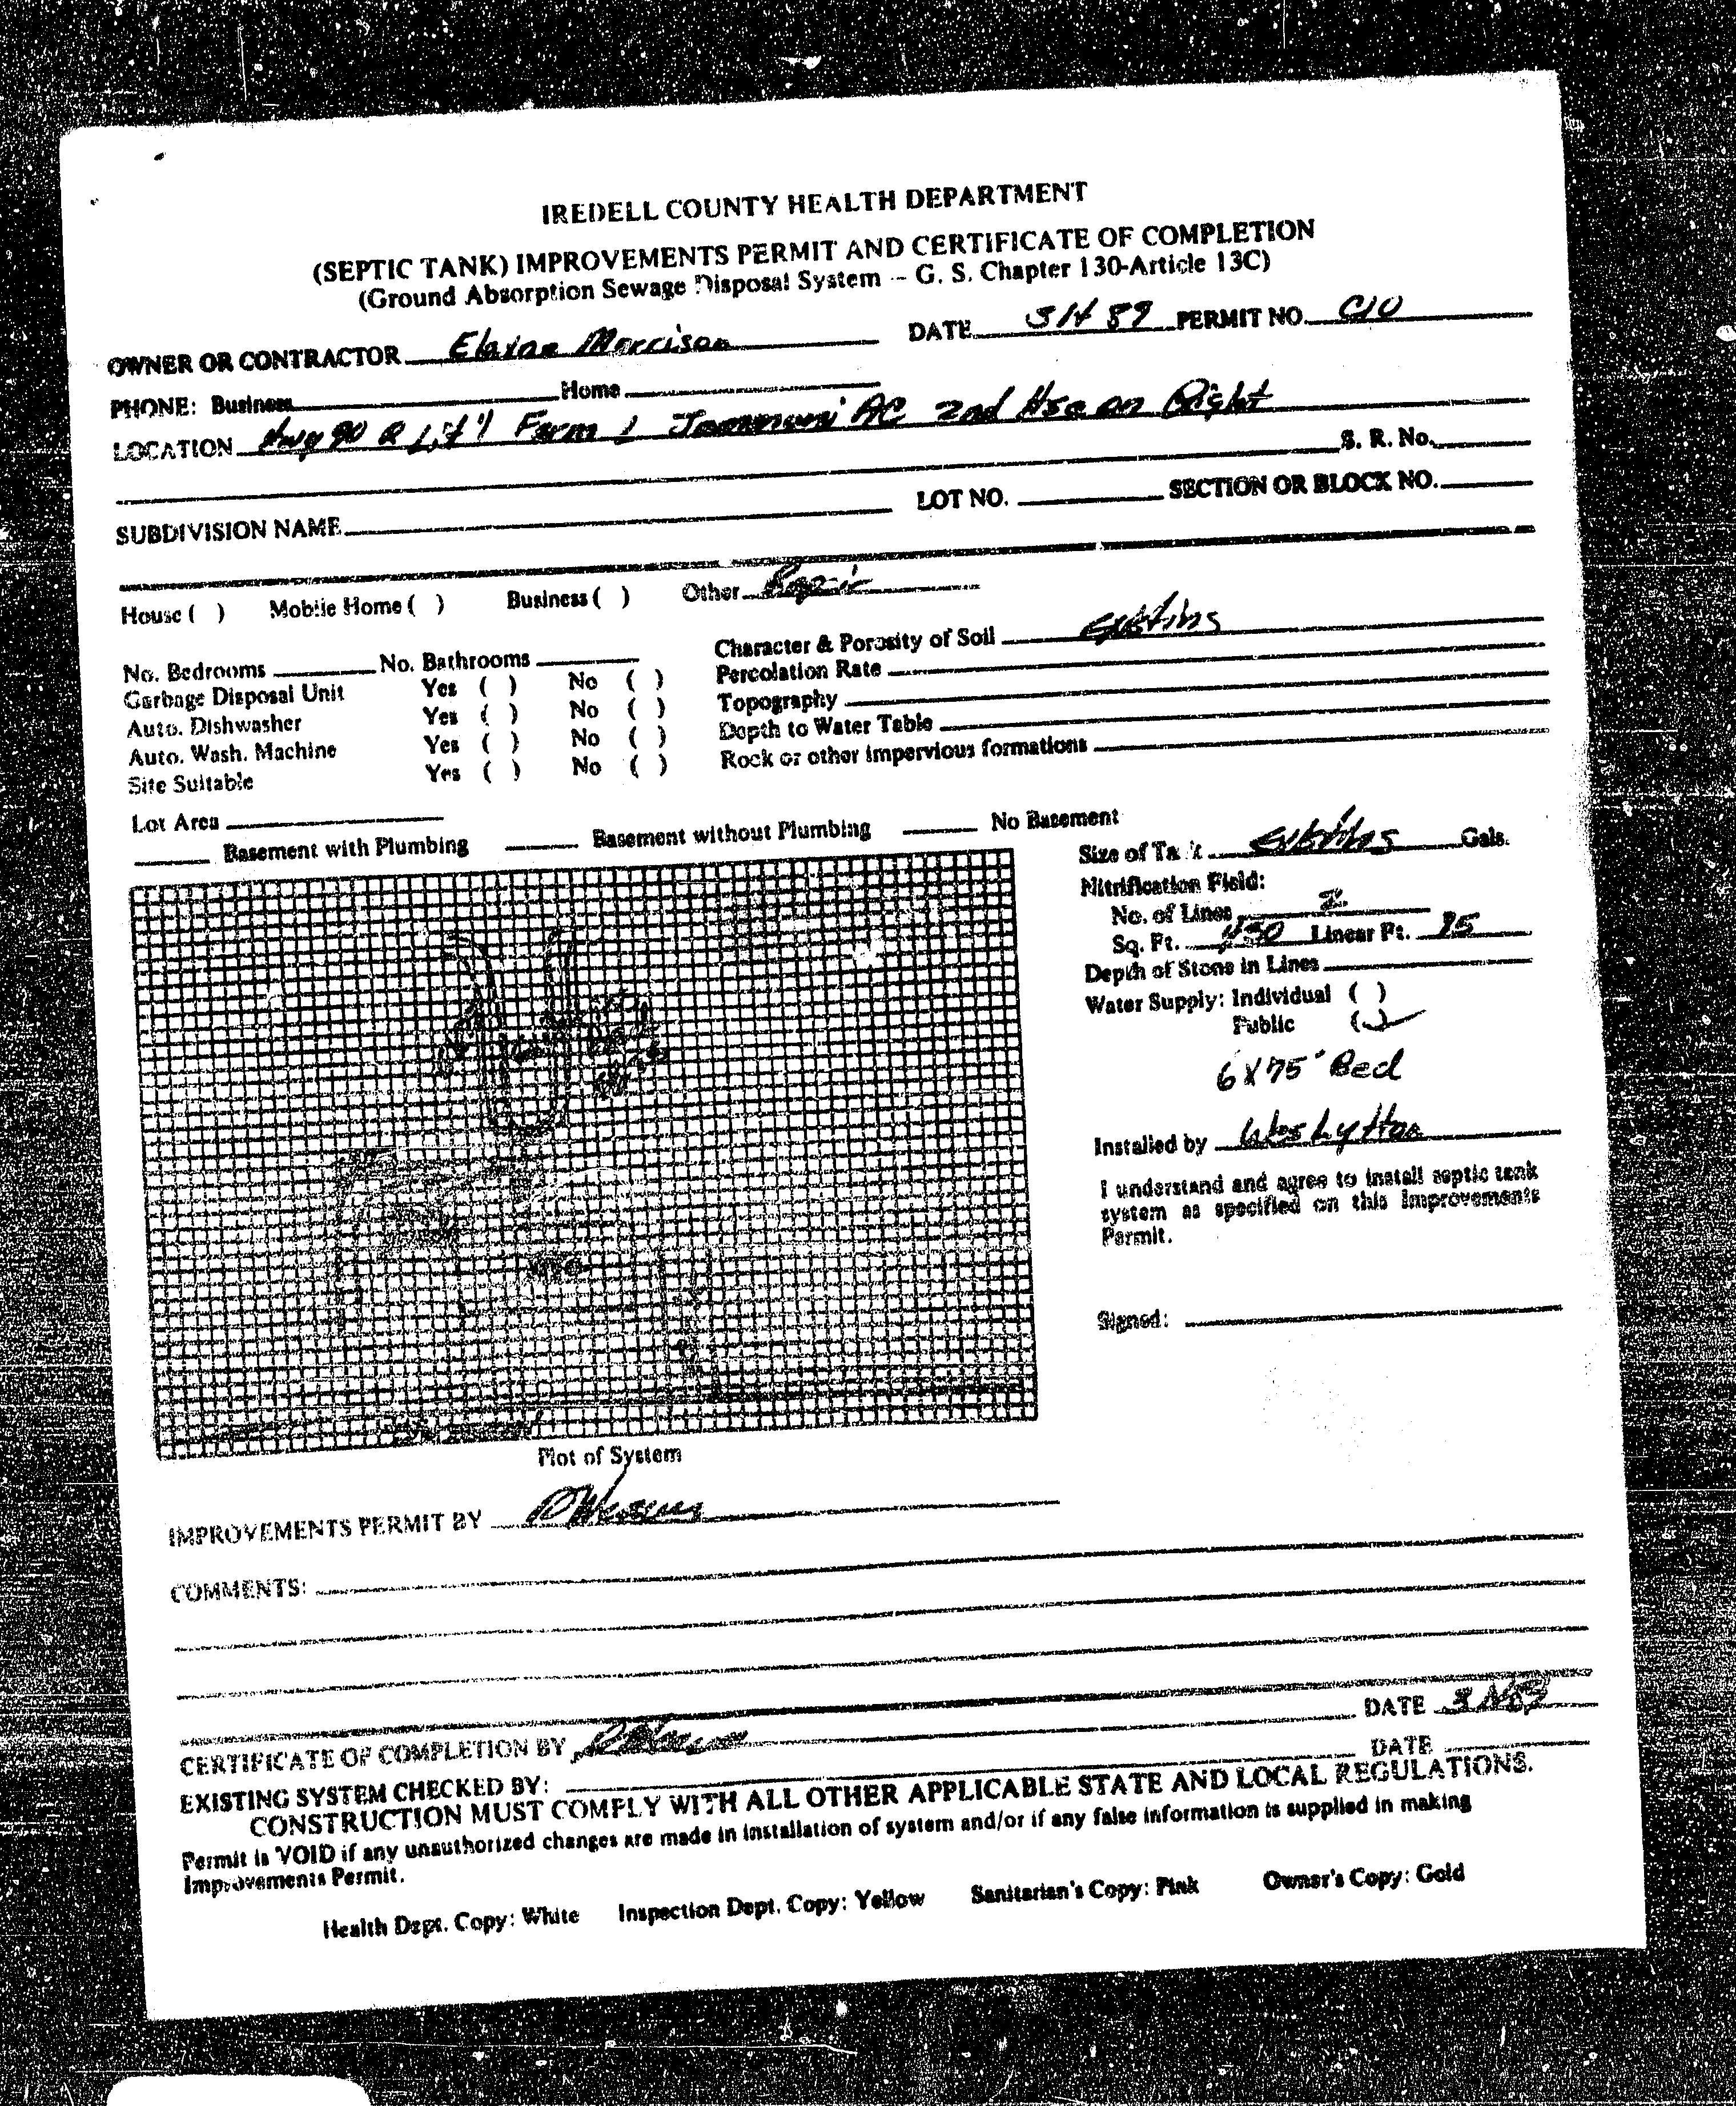 IREDELL COUNTY HEALTH DEPARTMENT
(SEPTIC TANK) IMPROVEMENTS PERMIT AND CERTIFICATE OF COMPLETION
(Ground Absorption Sewage Disposal System -- G. S. Chapter 130-Article 13C)
OWNER OR CONTRACTOR Elaine Morrison DATE PERMIT NO.
PHONE: Business Home
LOCATION Hwy 90 Farm 2nd Hse on Right
S. R. No.
SUBDIVISION NAME LOT NO. SECTION OR BLOCK NO.
House ( ) Mobile Home ( ) Business ( ) Other Repair
Character & Porosity of Soil existing
No. Bedrooms No. Bathrooms Percolation Rate
Garbage Disposal Unit Yes ( ) No ( ) Topography
Auto. Dishwasher Yes ( ) No ( ) Depth to Water Table
Auto. Wash. Machine Yes ( ) No ( ) Rock or other impervious formations
Site Suitable Yes ( ) No ( )
Lot Area
Basement with Plumbing Basement without Plumbing No Basement
Size of Tank existing Gals.
Nitrification Field:
No. of Lines 2
Sq. Ft. 450 Linear Ft. 75
Depth of Stone in Lines
Water Supply: Individual ( )
Public (✓)
6 X 75' Bed
Installed by
I understand and agree to install septic tank
system as specified on this Improvements
Permit.
Signed:
Plot of System
IMPROVEMENTS PERMIT BY
COMMENTS:
CERTIFICATE OF COMPLETION BY DATE
EXISTING SYSTEM CHECKED BY: DATE
CONSTRUCTION MUST COMPLY WITH ALL OTHER APPLICABLE STATE AND LOCAL REGULATIONS.
Permit is VOID if any unauthorized changes are made in installation of system and/or if any false information is supplied in making
Improvements Permit.
Health Dept. Copy: White Inspection Dept. Copy: Yellow Sanitarian's Copy: Pink Owner's Copy: Gold